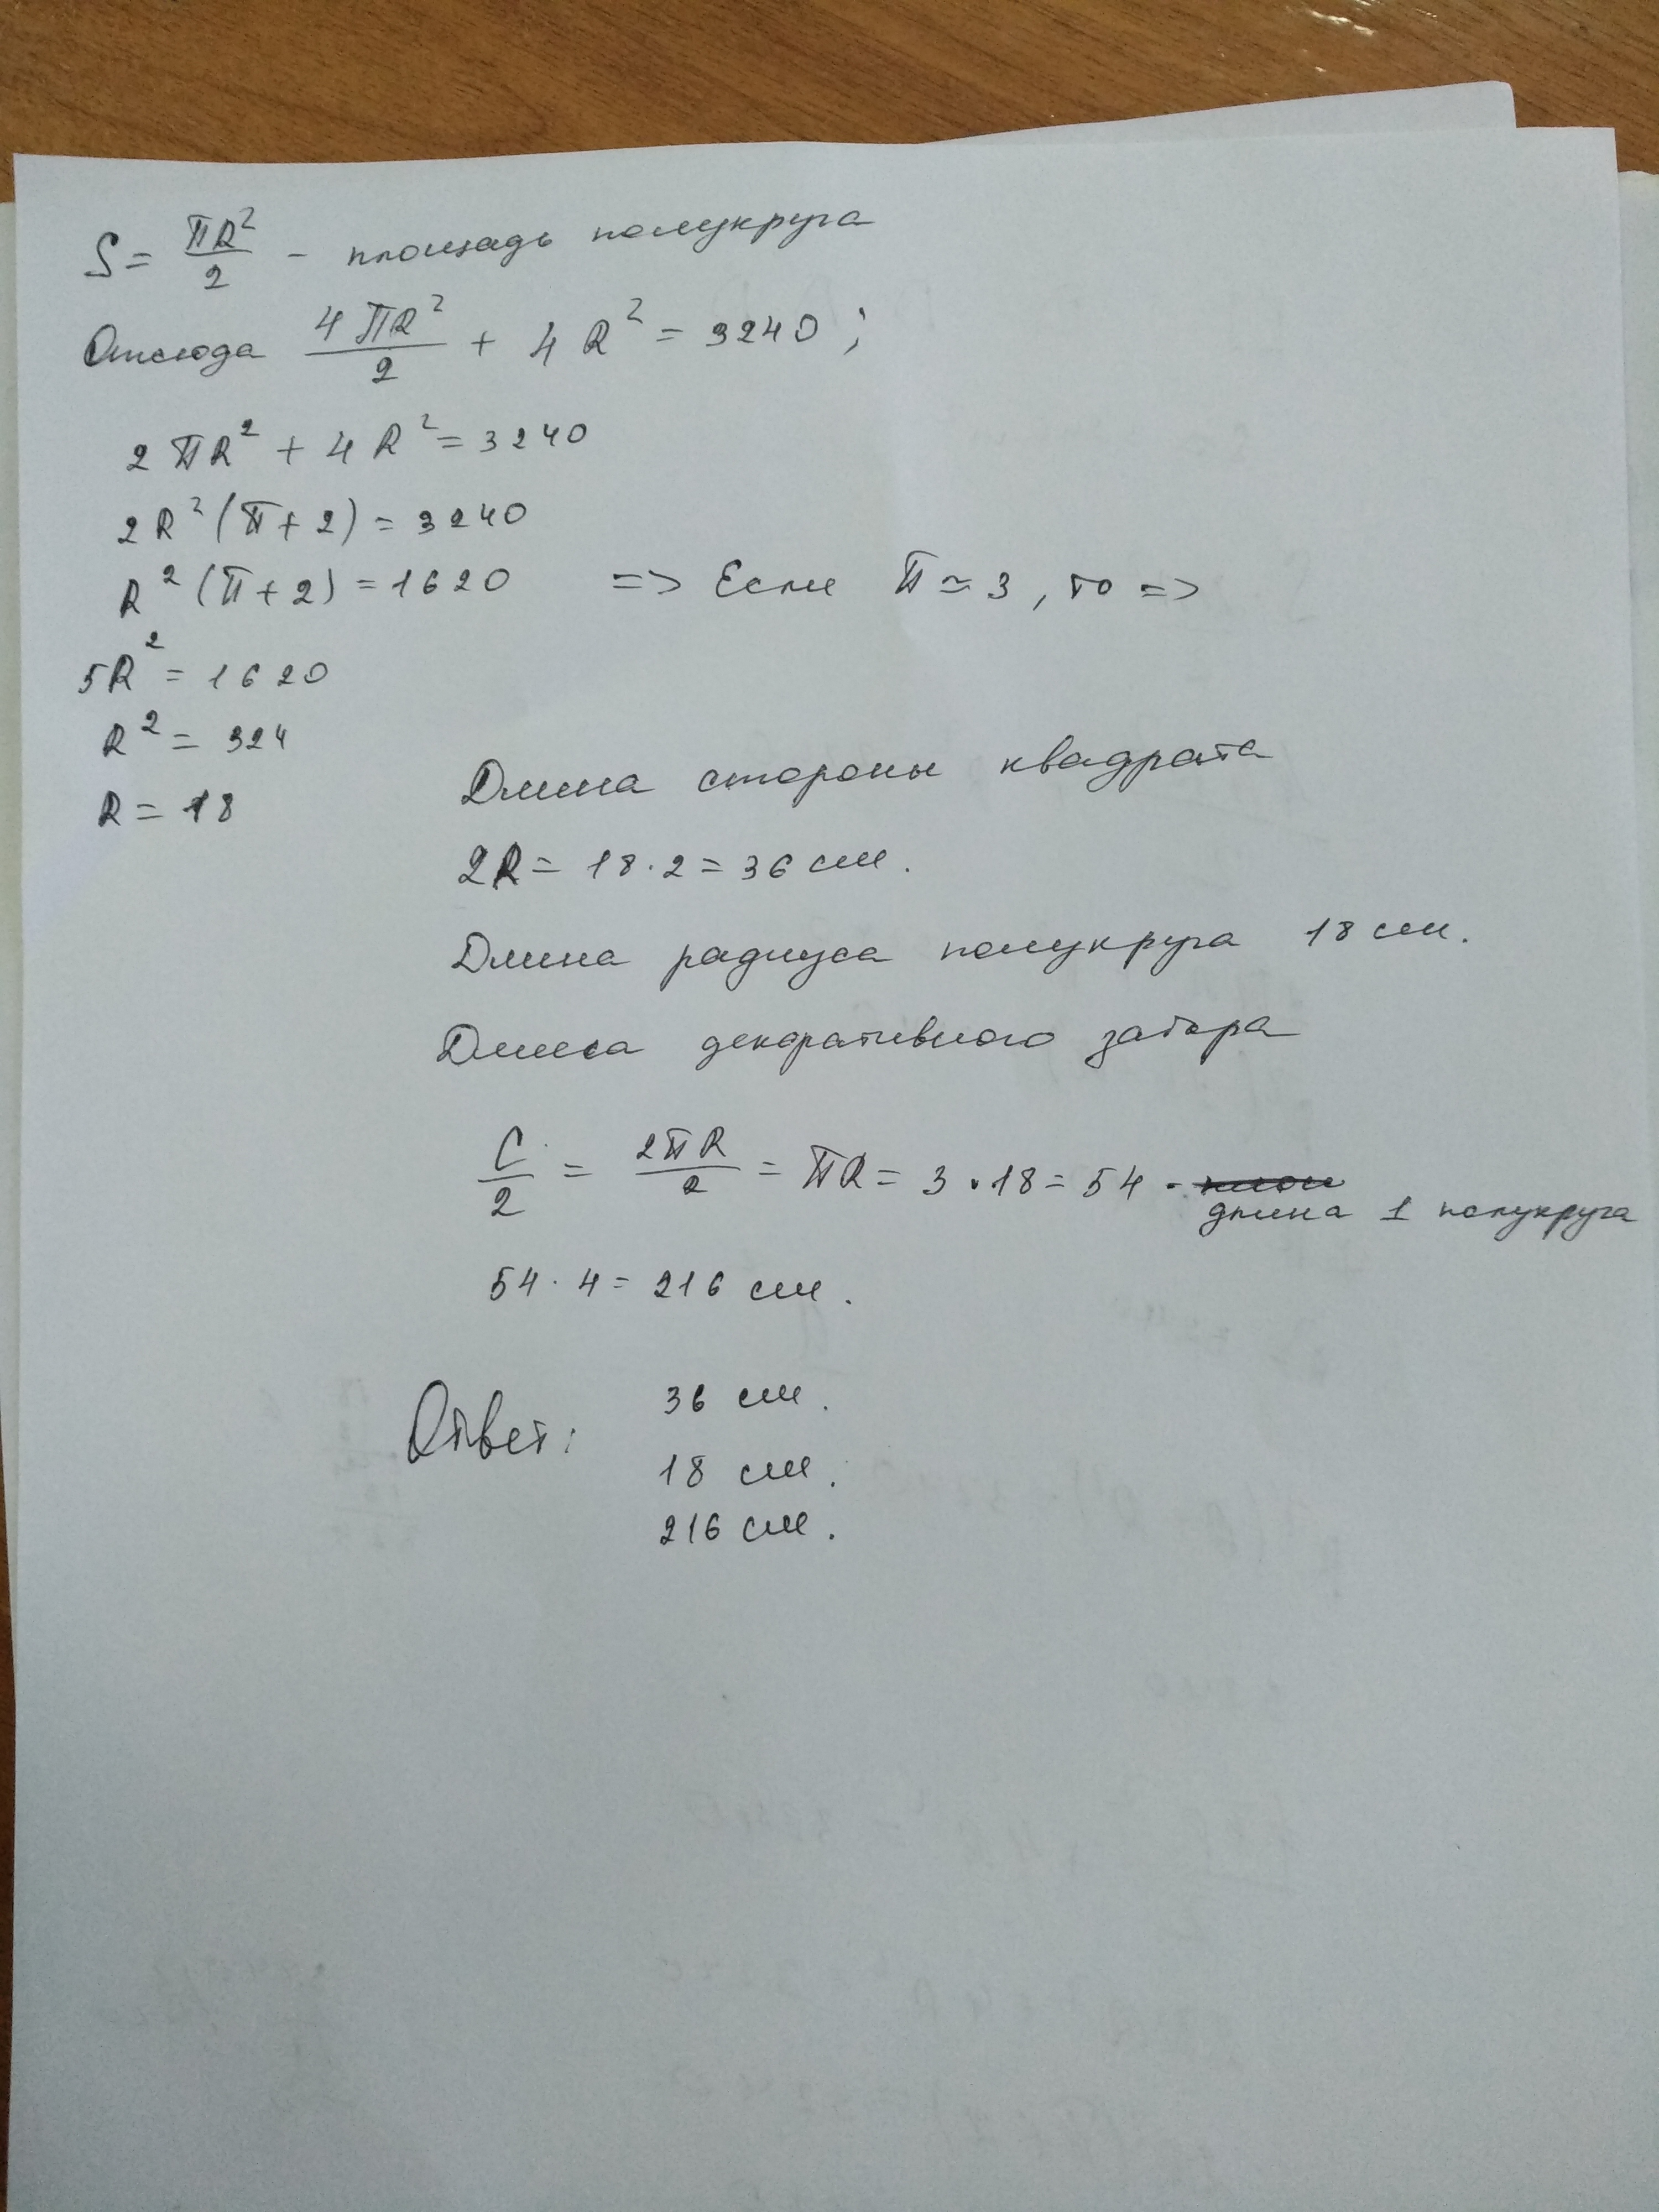 S = πR²/2 - площадь полукруга
Отсюда 4πR²/2 + 4R² = 3240;
2πR² + 4R² = 3240
2R²(π+2) = 3240
R²(π+2) = 1620 => Если π ≃ 3, то =>
5R² = 1620
R² = 324
R = 18
Длина стороны квадрата
2R = 18·2 = 36 см.
Длина радиуса полукруга 18 см.
Длина декоративного забора
C/2 = 2πR/2 = πR = 3·18 = 54 - длина 1 полукруга
54·4 = 216 см.
Ответ: 36 см.
18 см.
216 см.